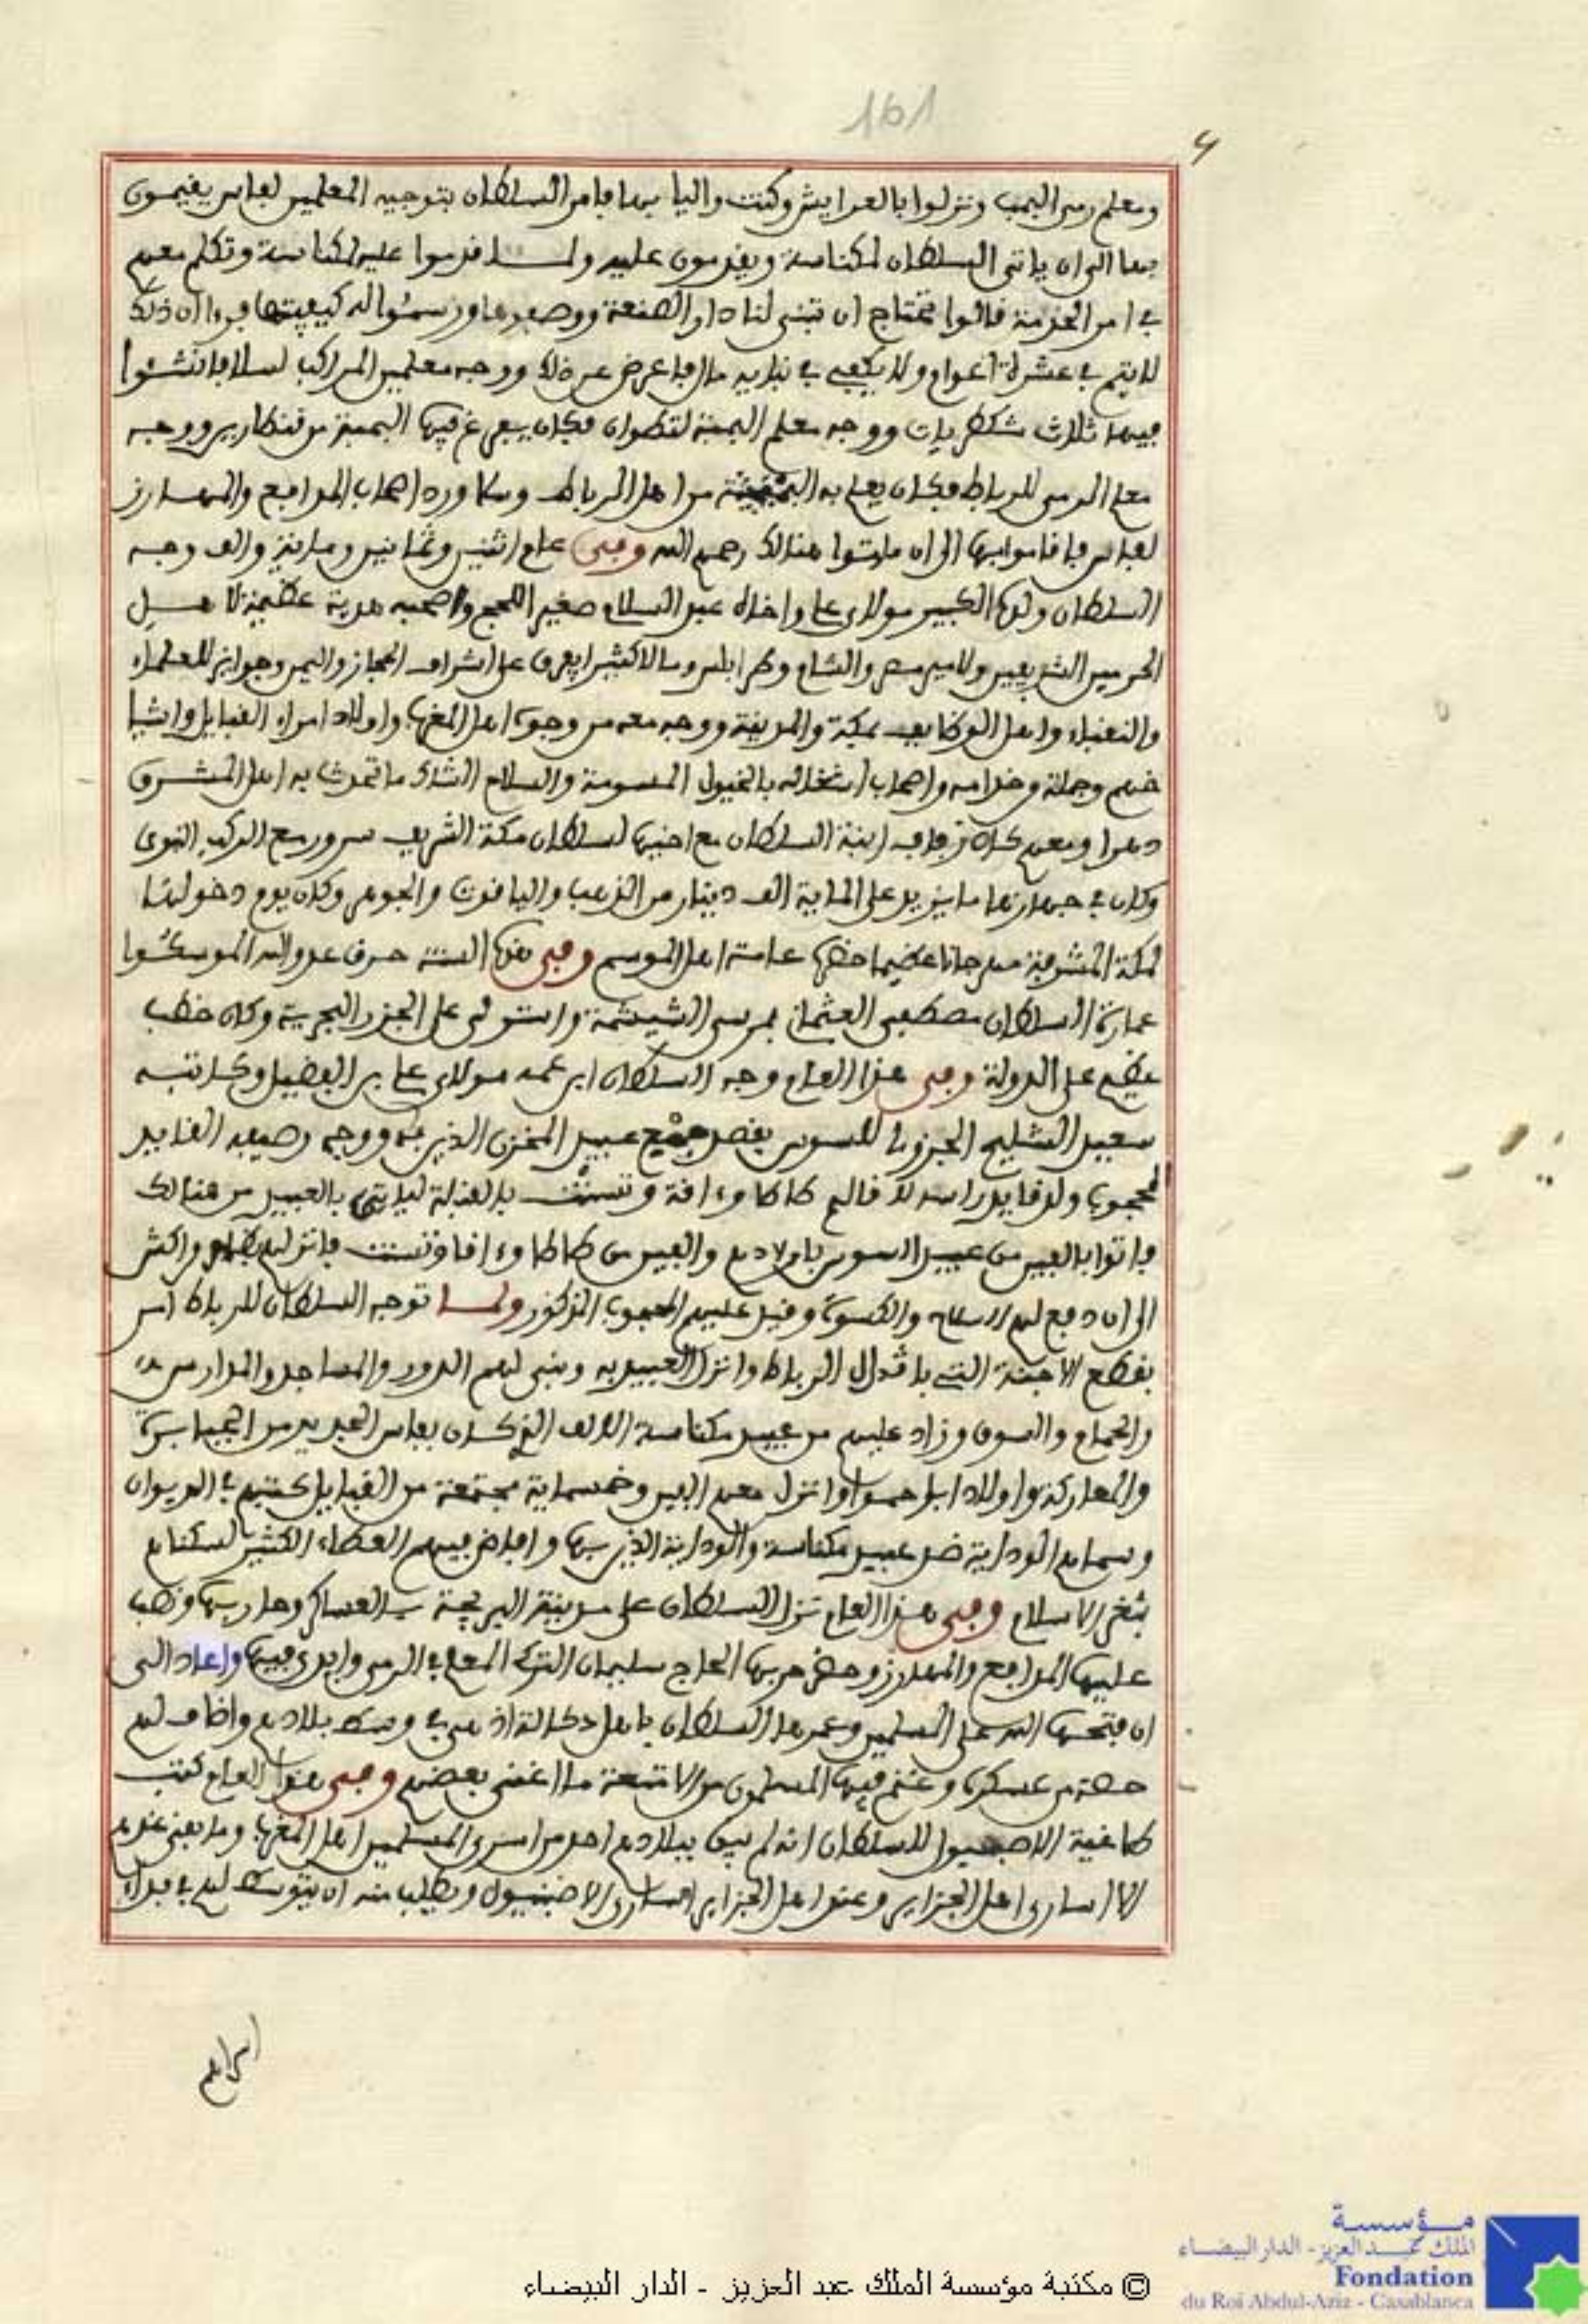 161
ومعلم رمى البمب ونزلوا بالعرايش وكنت واليا بها فامر السلطان بتوجيه المعلمين لفاس يقيمون
بها الى ان ياتى السلطان لمكناسة ويقدمون عليه ولما قدموا عليه لمكناسة وتكلم معهم
في امر الخدمة قالوا نحتاج ان تبنى لنا دار الصنعة ووصفوها ورسموا له كيفيتها فرءا ان ذلك
لا يتم في عشرة اعوام ولا يكفى في بنايه مال فاعرض عن ذلك ووجه معلمين المراكب لسلا فانشئوا
فيها ثلاث شكظريات ووجه معلم البمبة لتطوان فكان يفرغ فيها البمبة من قنطارين ووجه
معلم الرمى للرباط فكان يعلم به من اهل الرباط ورد اصحاب المدافع والمهارز
لفاس فاقاموا بها الى ان ماتوا هنالك رحمهم الله وفى عام اثنين وثمانين وماية والف وجه
السلطان ولده الكبير مولاى على واخاه عبد السلام صغير للحج واصحبه هدية عظيمة لاهل
الحرمين الشريفين ولامير مصر والشام وطرابلس ومالا كثيرا يفرق على اشراف الحجاز واليمن وجوايز للعلماء
والنقباء واهل الوظايف بمكة والمدينة ووجه معه من وجوه اهل المغرب واولاد امراء القبايل واشيا
خهم وجملة وخدامه واصحاب اشغاله بالخيول المسومة والسلاح الشاك ما تحدث به اهل المشرق
دهرا ومعهم كان زفاف ابنة السلطان مع اخيها لسلطان مكة الشريف سرور مع الركب النبوى
وكان في جهازها ما يزيد على الماية الف دينار من الذهب والياقوت والجوهر وكان يوم دخولها
لمكة المشرفة مهرجانا عظيما حضره عامة اهل الموسم وفى هذه السنة حرق عدو الله الموسكوا
عمارة السلطان مصطفى العثمانى بمرسى الشيشمة واستولى على الجزر البحرية وكان خطب
عظيم على الدولة وفى هذا العام وجه السلطان ابن عمه مولاى على بن الفضيل وكاتبه
سعيد الشليح الجزولى للسوس بقصد جمع عبيد المخزن الذين به ووجه وصيفه القايد
المحجوب ولد قايد راسه لاقاليم طاطا وءاقة وتسنت بالقبلة لياتى بالعبيد من هنالك
فاتوا بالفين من عبيد السوس باولادهم والفين من طاطا وءاقا وتسنت فانزلهم بظاهر مراكش
الى ان دفع لهم السلاح والكسوة وقبل عليهم المحجوب المذكور ولما توجه السلطان للرباط امر
بقطع الاجنة التى باقدال الرباط وانزل العبيد به وبنى لهم الدور والمساجد والمدارس
والحمام والسوق وزاد عليهم من عبيد مكناسة الالف الذى كان بفاس الجديد من
واولاد وانزل معهم الفين وخمسماية مجتمعة من القبايل كتبهم في الديوان
وسماهم الودايا ضد عبيد مكناسة والودايا الذين بها وافاض فيهم العطاء الكثير لسكناهم
بثغر الاسلام وفى هذا العام نزل السلطان على مدينة البريجة بالعساكر وحاربها ونصب
عليها المدافع والمهارز وحضر حربها الحاج سليمان التركى المعلم في الرمى وابدى فيها واعاد الى
ان فتحها الله على المسلمين وعمرها السلطان باهل دكالة اذ هى في وسط بلادهم واضاف لهم
حصة من عسكره وغنم فيها المسلمون من الامتعة ما اغنى بعضهم وفى هذا العام كتب
طاغية الاصبنيول للسلطان انه لم يبق ببلادهم احد من اسرى المسلمين اهل المغرب وما بقى عندهم
الا اسارى اهل الجزاير وعند اهل الجزاير اسارى الاصبنيول ويطلب منه ان يتوسط لهم في فداء
مؤسسة
الملك عبد العزيز - الدار البيضاء
Fondation
du Roi Abdul-Aziz - Casablanca
© مكتبة مؤسسة الملك عبد العزيز - الدار البيضاء